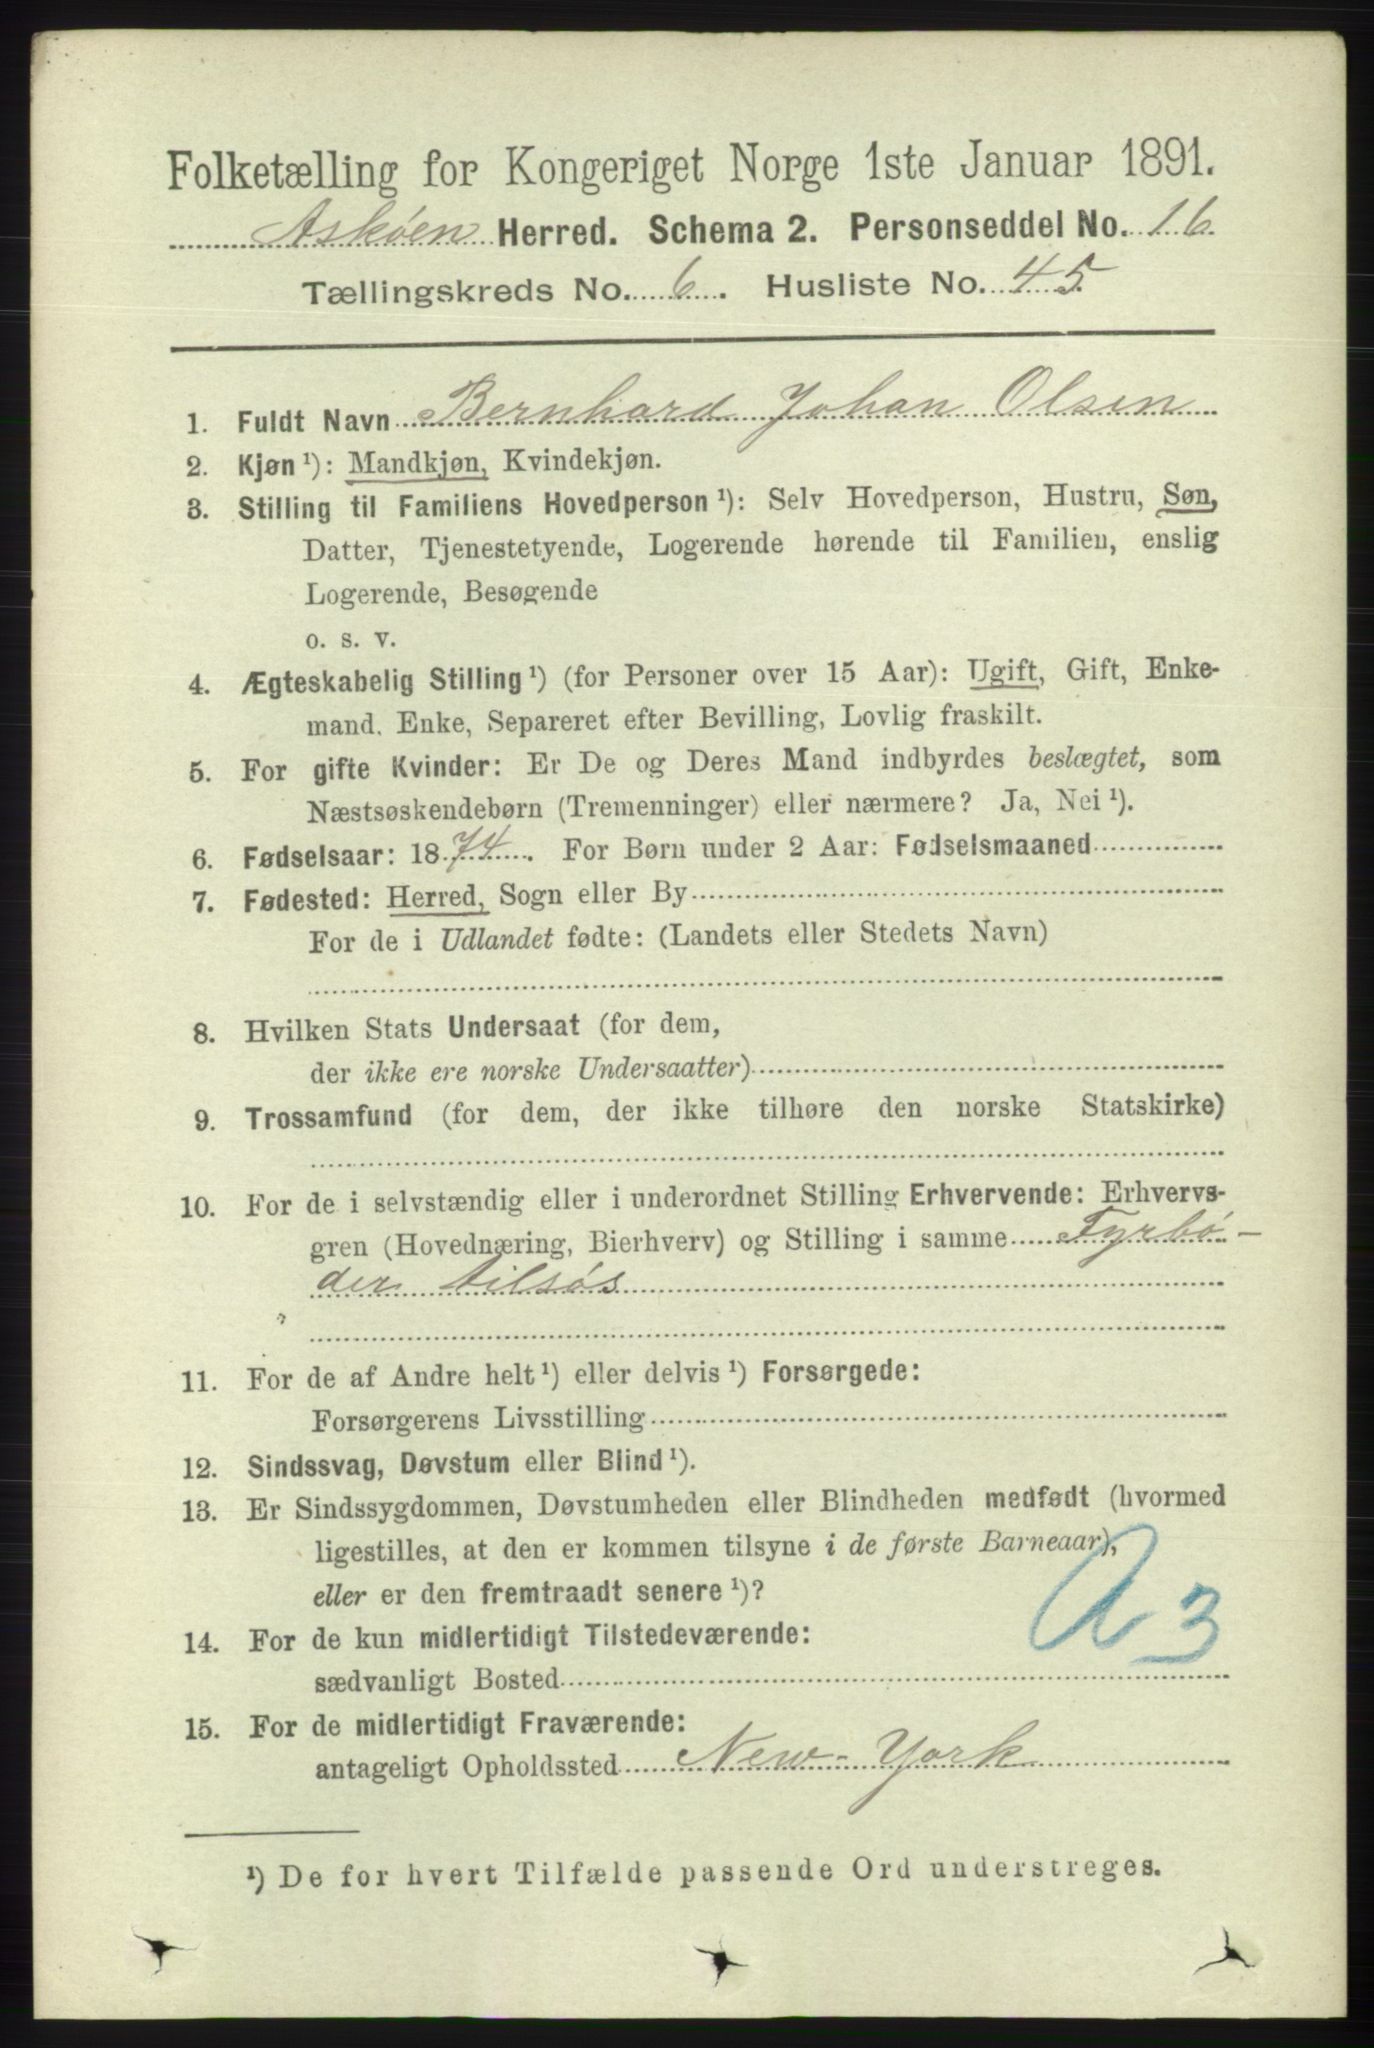 Folketælling for Kongeriget Norge 1ste Januar 1891.
Askøen Herred. Schema 2. Personseddel No. 16
Tællingskreds No. 6. Husliste No. 45
1. Fuldt Navn Bernhard Johan Olsen
2. Kjøn ¹): Mandkjøn, Kvindekjøn.
3. Stilling til Familiens Hovedperson ¹): Selv Hovedperson, Hustru, Søn,
Datter, Tjenestetyende, Logerende hørende til Familien, enslig
Logerende, Besøgende
o. s. v.
4. Ægteskabelig Stilling ¹) (for Personer over 15 Aar): Ugift, Gift, Enke-
mand, Enke, Separeret efter Bevilling, Lovlig fraskilt.
5. For gifte Kvinder: Er De og Deres Mand indbyrdes beslægtet, som
Næstsøskendebørn (Tremenninger) eller nærmere? Ja, Nei ¹).
6. Fødselsaar: 1874. For Børn under 2 Aar: Fødselsmaaned
7. Fødested: Herred, Sogn eller By
For de i Udlandet fødte: (Landets eller Stedets Navn)
8. Hvilken Stats Undersaat (for dem,
der ikke ere norske Undersaatter)
9. Trossamfund (for dem, der ikke tilhøre den norske Statskirke)
10. For de i selvstændig eller i underordnet Stilling Erhvervende: Erhvervs-
gren (Hovednæring, Bierhverv) og Stilling i samme Fyrbø-
der tilsøs
11. For de af Andre helt ¹) eller delvis ¹) Forsørgede:
Forsørgerens Livsstilling
12. Sindssvag, Døvstum eller Blind ¹).
13. Er Sindssygdommen, Døvstumheden eller Blindheden medfødt (hvormed
ligestilles, at den er kommen tilsyne i de første Barneaar),
eller er den fremtraadt senere ¹)?
A 3
14. For de kun midlertidigt Tilstedeværende:
sædvanligt Bosted
15. For de midlertidigt Fraværende:
antageligt Opholdssted New-York
¹) De for hvert Tilfælde passende Ord understreges.